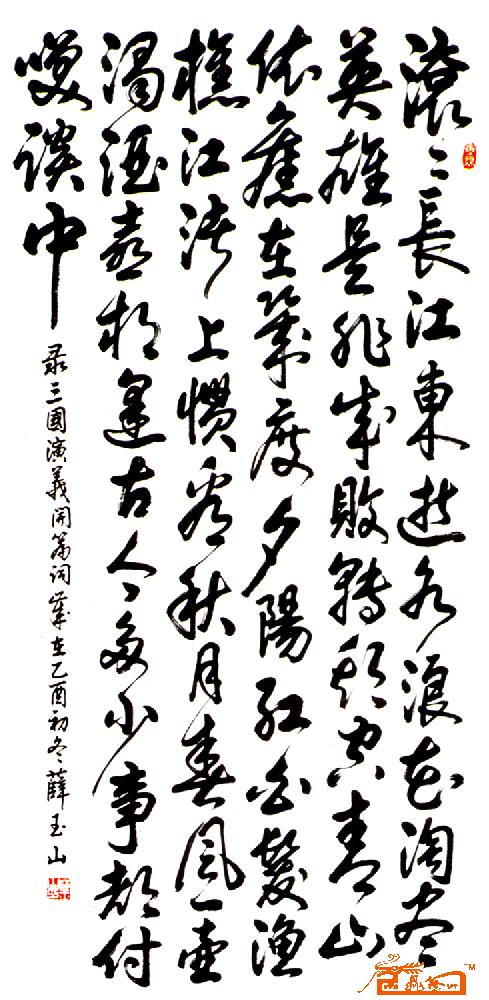 滚滚長江東逝水浪花淘尽
英雄是非成敗轉頭空青山
依舊在幾度夕陽紅白髮渔
樵江渚上慣看秋月春風一壺
濁酒喜相逢古今多少事都付
笑談中
录三國演義開篇词歲在乙酉初冬薛玉山